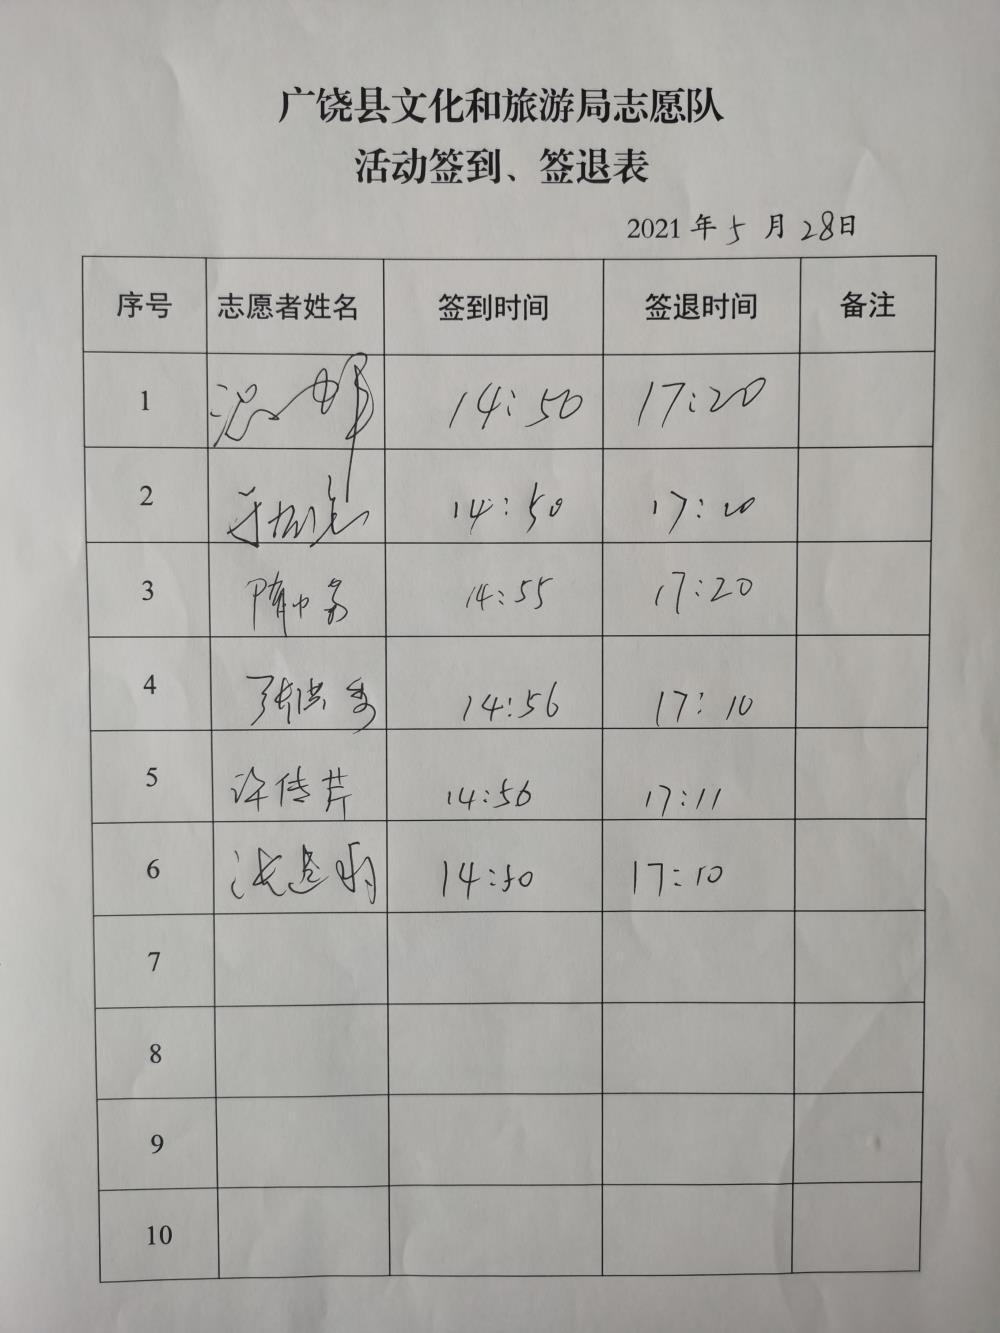 广饶县文化和旅游局志愿队
活动签到、签退表
2021年5月28日
序号 志愿者姓名 签到时间 签退时间 备注
1 14:50 17:20
2 14:50 17:20
3 隋中 14:55 17:20
4 张洪秀 14:56 17:10
5 许传芹 14:56 17:11
6 14:50 17:10
7
8
9
10